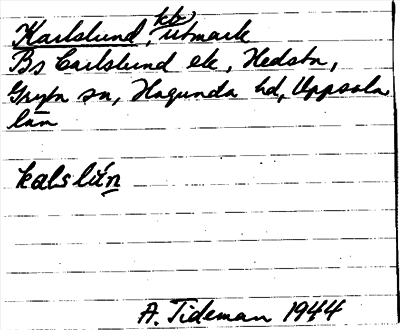 Karlslund, kb, utmark
Bs Carlslund ek, Hedsta,
Gryta sn, Hagunda hd, Uppsala
län
kalslún
A. Tideman 1944